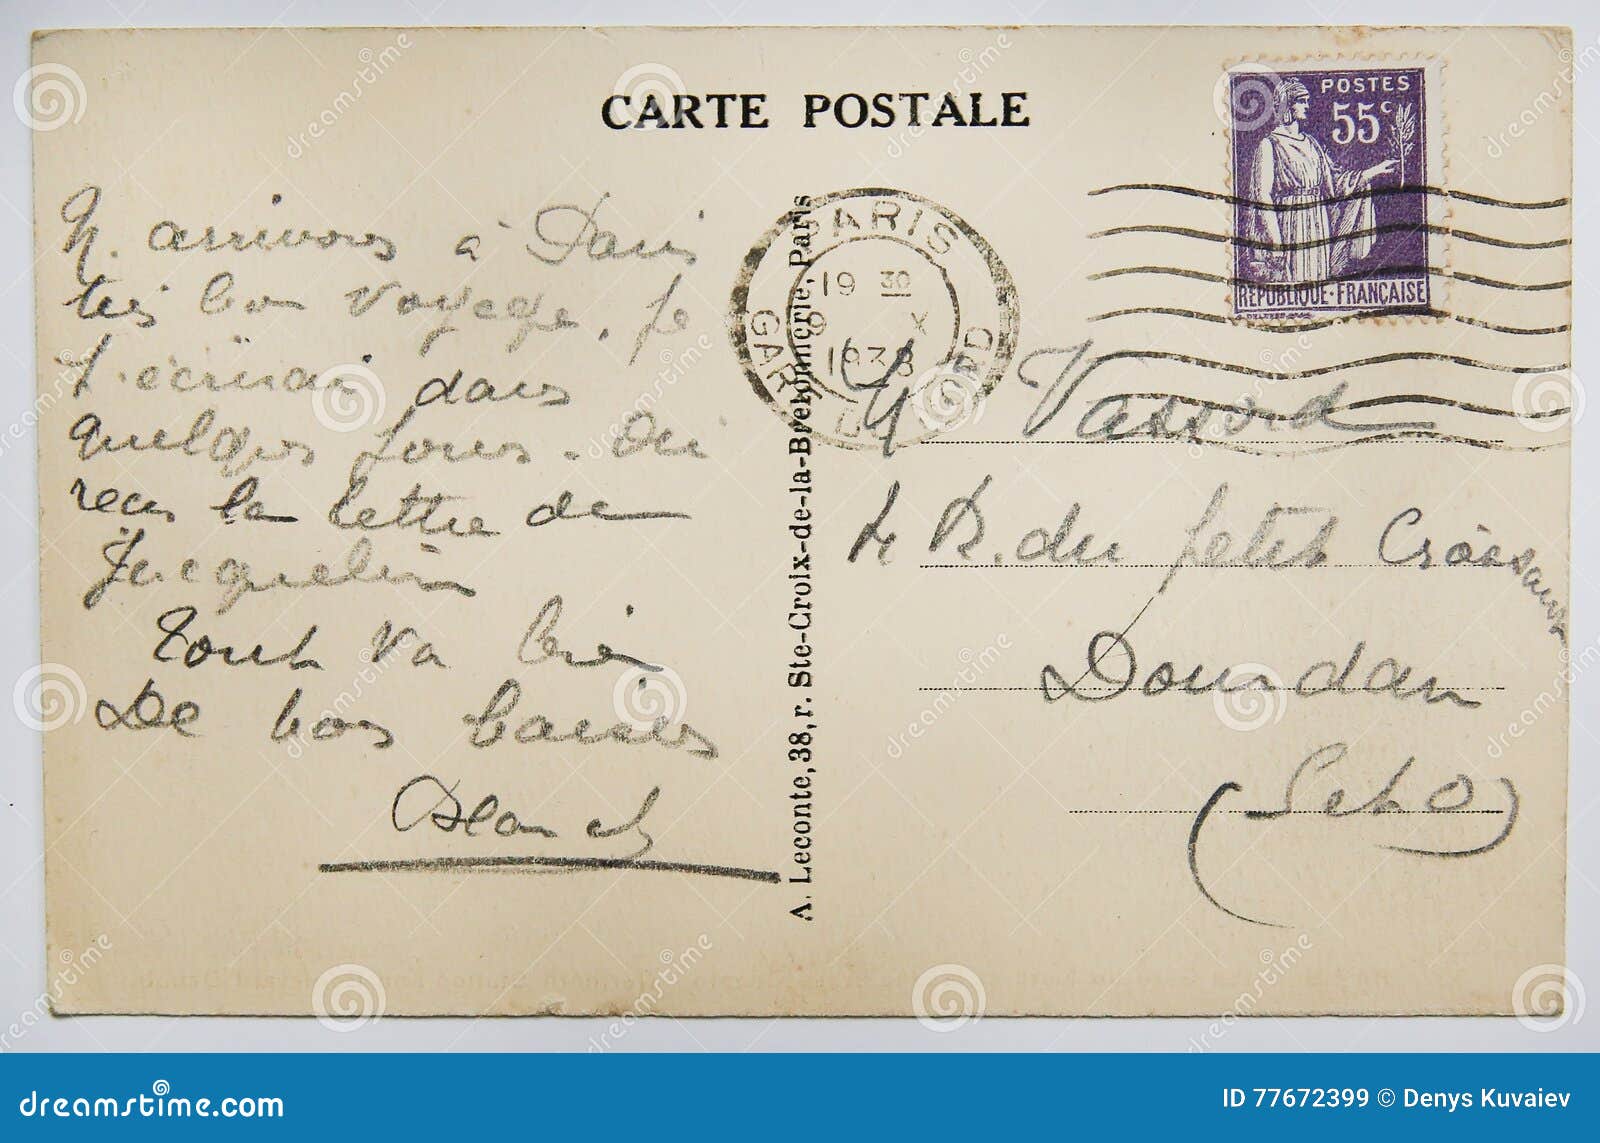 CARTE POSTALE
POSTES
55c
REPUBLIQUE·FRANÇAISE
PARIS
19 30
9 X
1938
GARE DU NORD
N. arrivons à Paris
très bon voyage. Je
t'écrirai dans
quelques jours. Ai
reçu la lettre de
Jacqueline
Tout va bien
De bos baisers
Blanch
A. Leconte, 38, r. Ste-Croix-de-la-Bretonnerie, Paris
M Vassord
R. du petit Croissant
Dourdan
(Set O)
dreamstime
dreamstime.com
ID 77672399 © Denys Kuvaiev